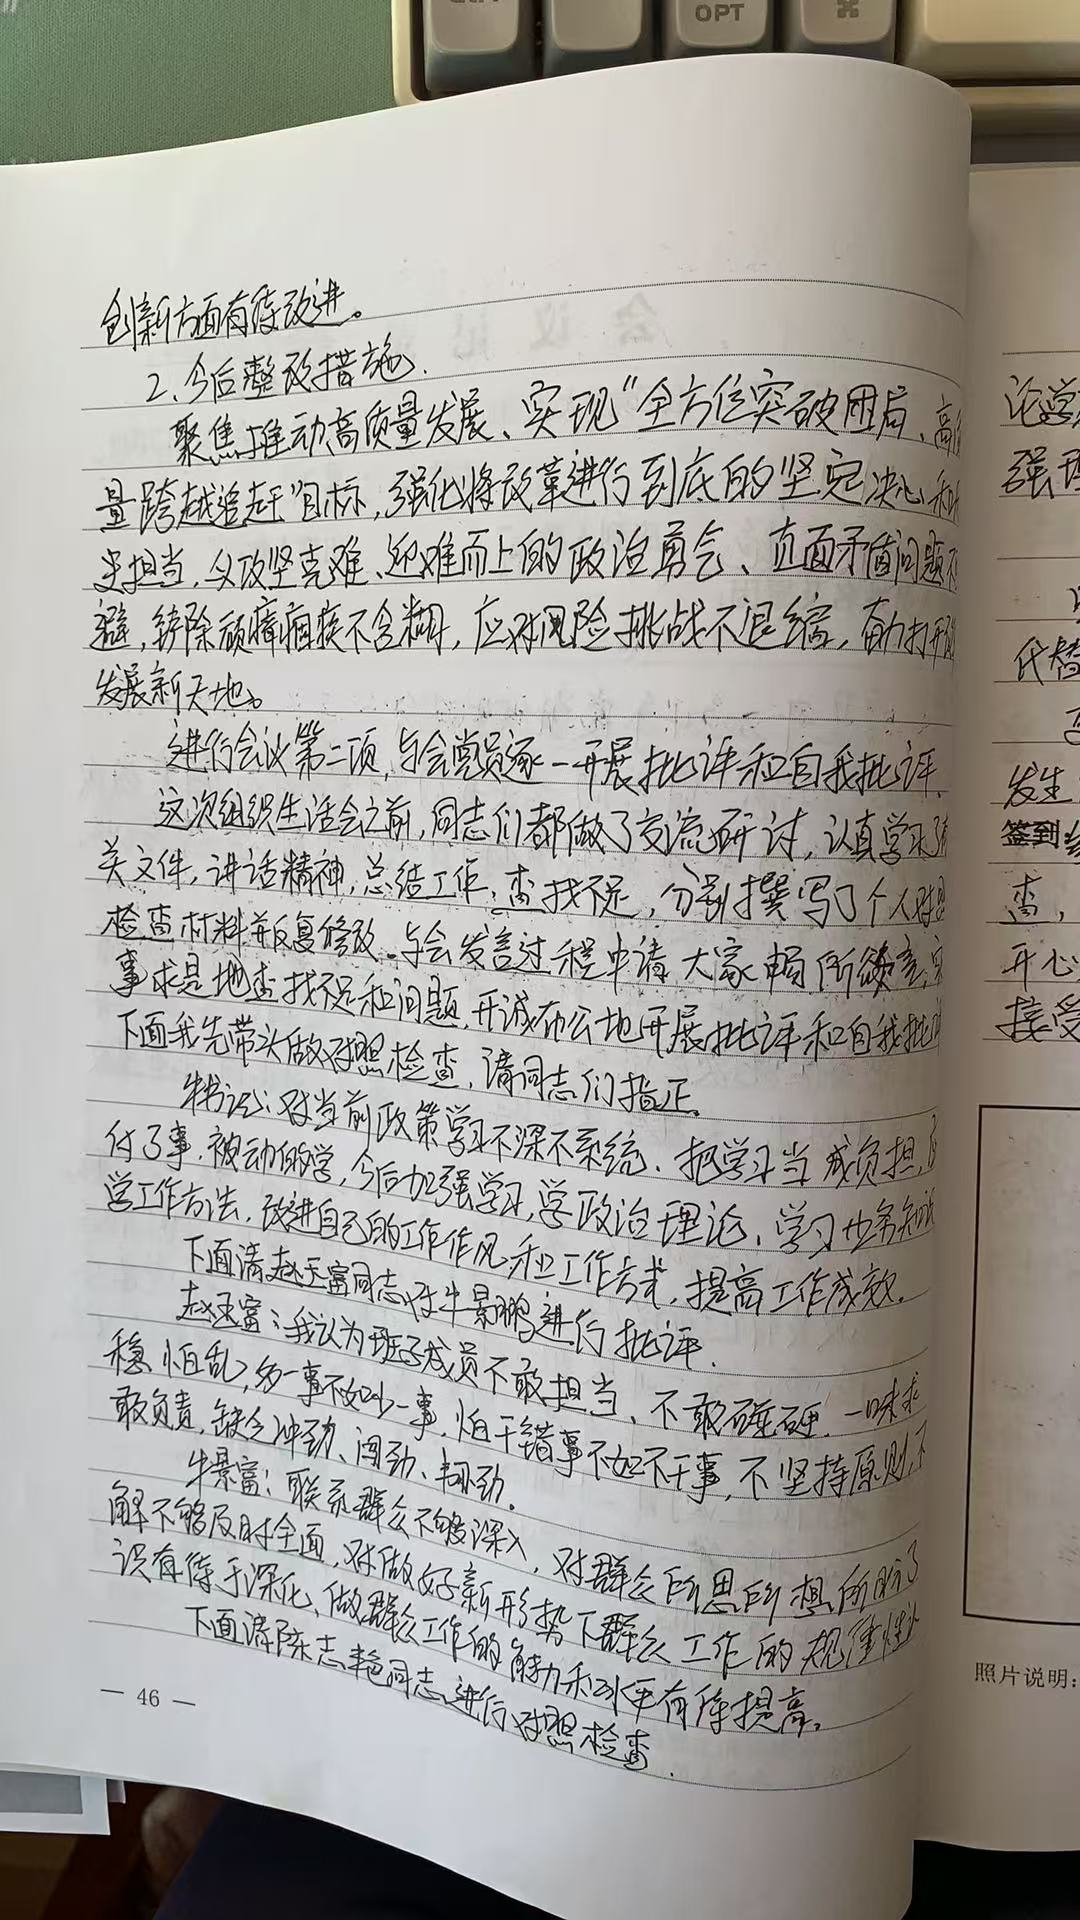 OPT
创新方面有待改进。
2、今后整改措施.
聚焦推动高质量发展、实现“全方位突破困局、高
量跨越追赶”目标,强化将改革进行到底的坚定决心和
史担当,以攻坚克难、迎难而上的政治勇气、直面矛盾问题不
避,铲除顽瘴痼疾不含糊,应对风险挑战不退缩,奋力打开
发展新天地。
进行会议第二项,与会党员逐一开展批评和自我批评.
这次组织生活会之前,同志们都做了交流研讨,认真学习了
关文件,讲话精神,总结工作,查找不足,分别撰写了个人对照
检查材料并反复修改.与会发言过程中请大家畅所欲言,实
事求是地查找不足和问题,开诚布公地开展批评和自我批
下面我先带头做对照检查,请同志们指正.
牛书记:对当前政策学习不深不系统.把学习当成负担,
付了事.被动的学,今后加强学习,学政治理论、学习业务知识
学工作方法,改进自己的工作作风和工作方式,提高工作成效.
下面请赵玉富同志对牛景鹏进行批评.
赵玉富:我认为班子成员不敢担当、不敢碰硬.一味求
稳怕乱,多一事不如少一事,怕干错事不如不干事,不坚持原则,不
敢负责,缺乏冲劲、闯劲、韧劲.
牛景富:联系群众不够深入,对群众所思所想所盼了
解不够及时全面,对做好新形势下群众工作的规律性认
识有待于深化、做群众工作的能力和水平有待提高。
下面请陈志艳同志进行对照检查.
— 46 —
强理
代替
发生
签到
查,
开心
接受
照片说明: